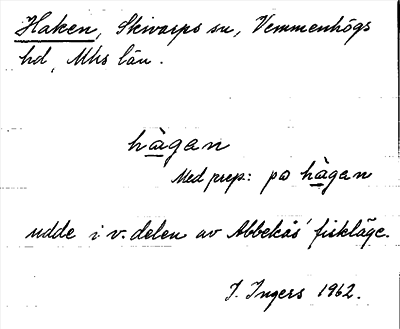 Haken, Skivarps sn, Vemmenhögs
hd, Mhs län.
hàgan
Med prep: po hàgan
udde i v. delen av Abbekås' fiskläge.
I. Ingers 1962.